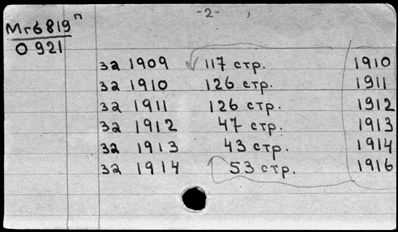 -2-
Мг6819п
О 921
за 1909 117 стр. 1910
за 1910 126 стр. 1911
за 1911 126 стр. 1912
за 1912 47 стр. 1913
за 1913 43 стр. 1914
за 1914 53 стр. 1916